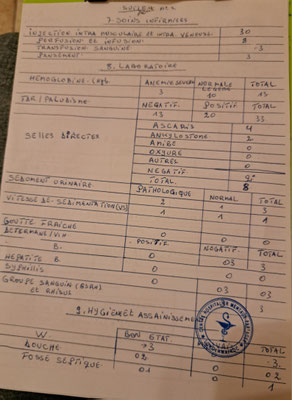 7. SOINS INFIRMIERS
INJECTION INTRA MUSCULAIRE ET INTRA VEINEUSE 30
PERFUSION ET INFUSION 8
TRANSFUSION SANGUINE -3
PANSEMENT 3
8. LABORATOIRE
HEMOGLOBINE ANEMIE SEVERE NORMALE TOTAL
3 10 13
TDR/PALUDISME NEGATIF POSITIF TOTAL
13 20 33
SELLES DIRECTES ASCARIS 4
ANKYLOSTOME 2
AMIBE 0
OXYURE 0
AUTRES 0
NEGATIF
TOTAL 8
SEDIMENT URINAIRE PATHOLOGIQUE NORMAL TOTAL
2 1 3
VITESSE DE SEDIMENTATION (VS) 1 1
GOUTTE FRAICHE 0 0 0
0 0 0
B. POSITIF NEGATIF TOTAL
HEPATITE B 0 03 3
SYPHILIS 0 0 0
GROUPE SANGUIN 03 03
ET RHESUS 0 0
9. HYGIENE ET ASSAINISSEMENT
W BON ETAT TOTAL
DOUCHE 3
FOSSE SEPTIQUE 02 0 02
01 0 1